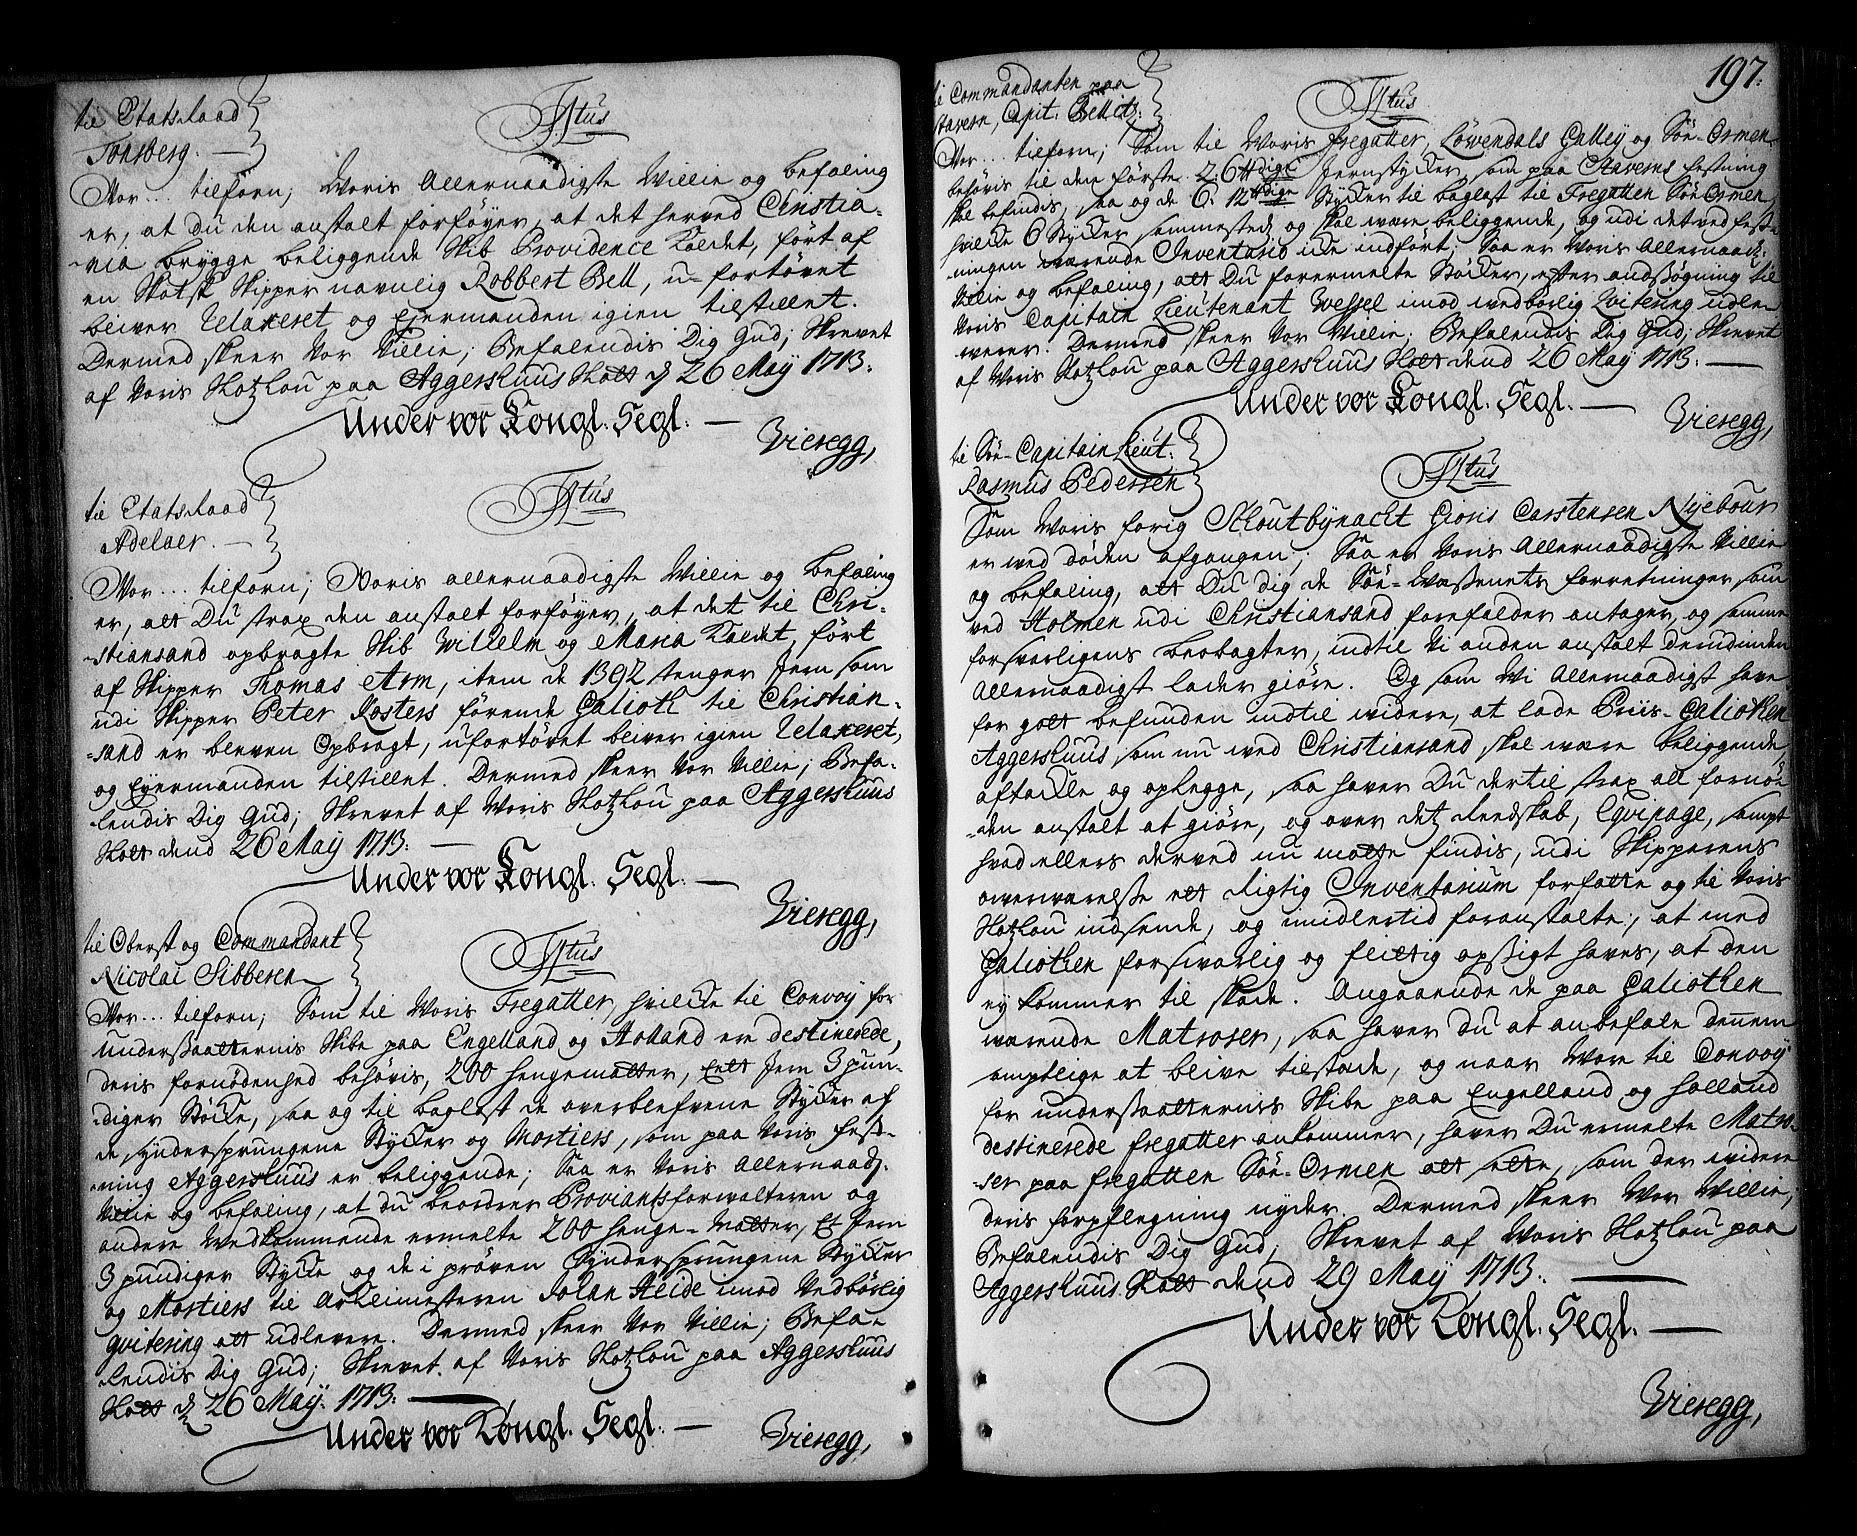 til Etatsraad
Tonsberg. —
Ftus
Vor... tilforn; Voris Allernaadigste Villie og befaling
er, at du den anstalt forføyer, at det herved Christia-
-nia brygge beliggende Skib Providence kaldet, ført af
en Skotsk Skipper navnlig Robbert Bell, u-fortøvet
bliver Relaxeret og Eyermanden igien tilstillet.
Dermed skeer Vor Villie; Befalendis Dig Gud; Skrevet
af Voris Slotzlou paa Aggershuus Slott d 26 May 1713.
Under vor Kongl. Segl. —
Vieregg,
til Etatsraad
Adelaer. —
Ftus
Vor... tilforn; Voris allernaadigste Villie og befaling
er, att Du strax den anstalt forføyer, at det til Chri-
-stiansand opbragte Skib Wilhelm og Maria kaldet, ført
af Skipper Thomas Arm, item de 1392 stenger Jern som
udi Skipper Peter Rosters førende Galioth til Christian-
-sand er bleven Opbragt, ufortøvet bliver igien Relaxeret,
og Eyermanden tilstillet. Dermed skeer Vor Villie; Befa-
-lendis Dig Gud; Skrevet af Voris Slotzlou paa Aggershuus
Slott dend 26 May 1713. —
Under vor Kongl. Segl. —
Vieregg,
til Oberst og Commandant
Nicolai Sibbern
Ftus
Vor... tilforn; Som til Voris Fregatter, hvilcke til Convoy for
undersaatternis Skibe paa Engelland og Holland ere destinerede,
deris fornødenhed behøvis, 200 hengematter, Ett Jern 3 pun-
-diger Støcke, saa og til baglast de overblefvene Stycker af
de syndersprungene Stycker og Mortiers, som paa Voris fest-
-ning Aggershuus er beliggende; Saa er Voris Allernaads:
Villie og befaling, at du beordrer Proviantsforvalteren og
andre Vedkommende ermelte 200 henge-Matter, Et Jern
3 pundiger Stycke og de i prøven Syndersprungene Stycker
og Mortiers til Arkeimesteren Johan Heide imod Vedbørlig
qvitering att udlevere. Dermed skeer Vor Villie; Befa-
-lendis Dig Gud; Skrevet af Voris Slotzlou paa Aggershuus
Slott d 26 May 1713. —
Under vor Kongl. Segl. —
Vieregg,
197.
til Commandanten paa
Stavern, Capit: Bellitz.
Ftus
Vor... tilforn; Som til Voris Fregatter, Løwendals Galley og Söe-Ormen
behøvis til den første 2: 6 ℔dige Jernstycker, som paa Staverns festning
skal befindis, saa og de 6: 12 ℔dige Stycker til baglast til Fregatten Söe-Ormen
hvilcke 6 Stycker sammestedz og skal være beliggende, og udi det ved fest-
ningen værende Inventario icke indført; Saa er Voris Allernaads:
Villie og befaling, att Du forermelte Støcker, efter andsøgning til
Voris Capitain Lieutenant Wessel imod vedbørlig Qvitering udle-
verer. Dermed skeer Vor Villie; Befalendis Dig Gud; Skrevet
af Voris Slotzlou paa Aggershuus Slott dend 26 May 1713. —
Under vor Kongl. Segl. —
Vieregg,
til Söe-Capitain Lieut:
Rasmus Pedersen
Ftus
Som Voris forig Skoutbynacht Gioris Carstensen Nyebour
er ved døden afgangen; Saa er Voris Allernaadigste Villie
og befaling, att Du dig de Söe-Væsenets forretninger, som
ved Holmen udi Christiansand forefalder antager, og samme
forsvarligens beobagter, indtil Vi anden anstalt derudinden
Allernaadigst lader giøre. Og som Vi Allernaadigst have
for gott befunden indtil videre, at lade Priis-Galiothen
Aggershuus, som nu ved Christiansand skal være beliggende,
aftackle og oplegge, saa haver Du dertil strax all fornø-
-den anstalt at giøre, og over detz Reedskab, Eqvipage, sampt
hvad ellers derved nu matte findis, udi Skipperens
overværelse ett Rigtig Inventarium forfatte og til Voris
Slotzlou indsende, og imidlertid foranstalte, at med
Galiothen forsvarlig og flittig opsigt haves, at den
ey kommer til skade. Angaaende de paa Galiothen
værende Matroser, saa haver Du at anbefale dennem
samptlige at blive tilstæde, og naar Vore til Convoy
for undersaatternis Skibe paa Engelland og Holland
destinerede fregatter ankommer, haver Du ermelte Matro-
-ser paa fregatten Söe-Ormen att sette, som der videre
deris forpflegning nyder. Dermed skeer Vor Villie,
Befalendis Dig Gud; Skrevet af Voris Slotzlou paa
Aggershuus Slott dend 29 May 1713. —
Under vor Kongl. Segl. —
Vieregg,